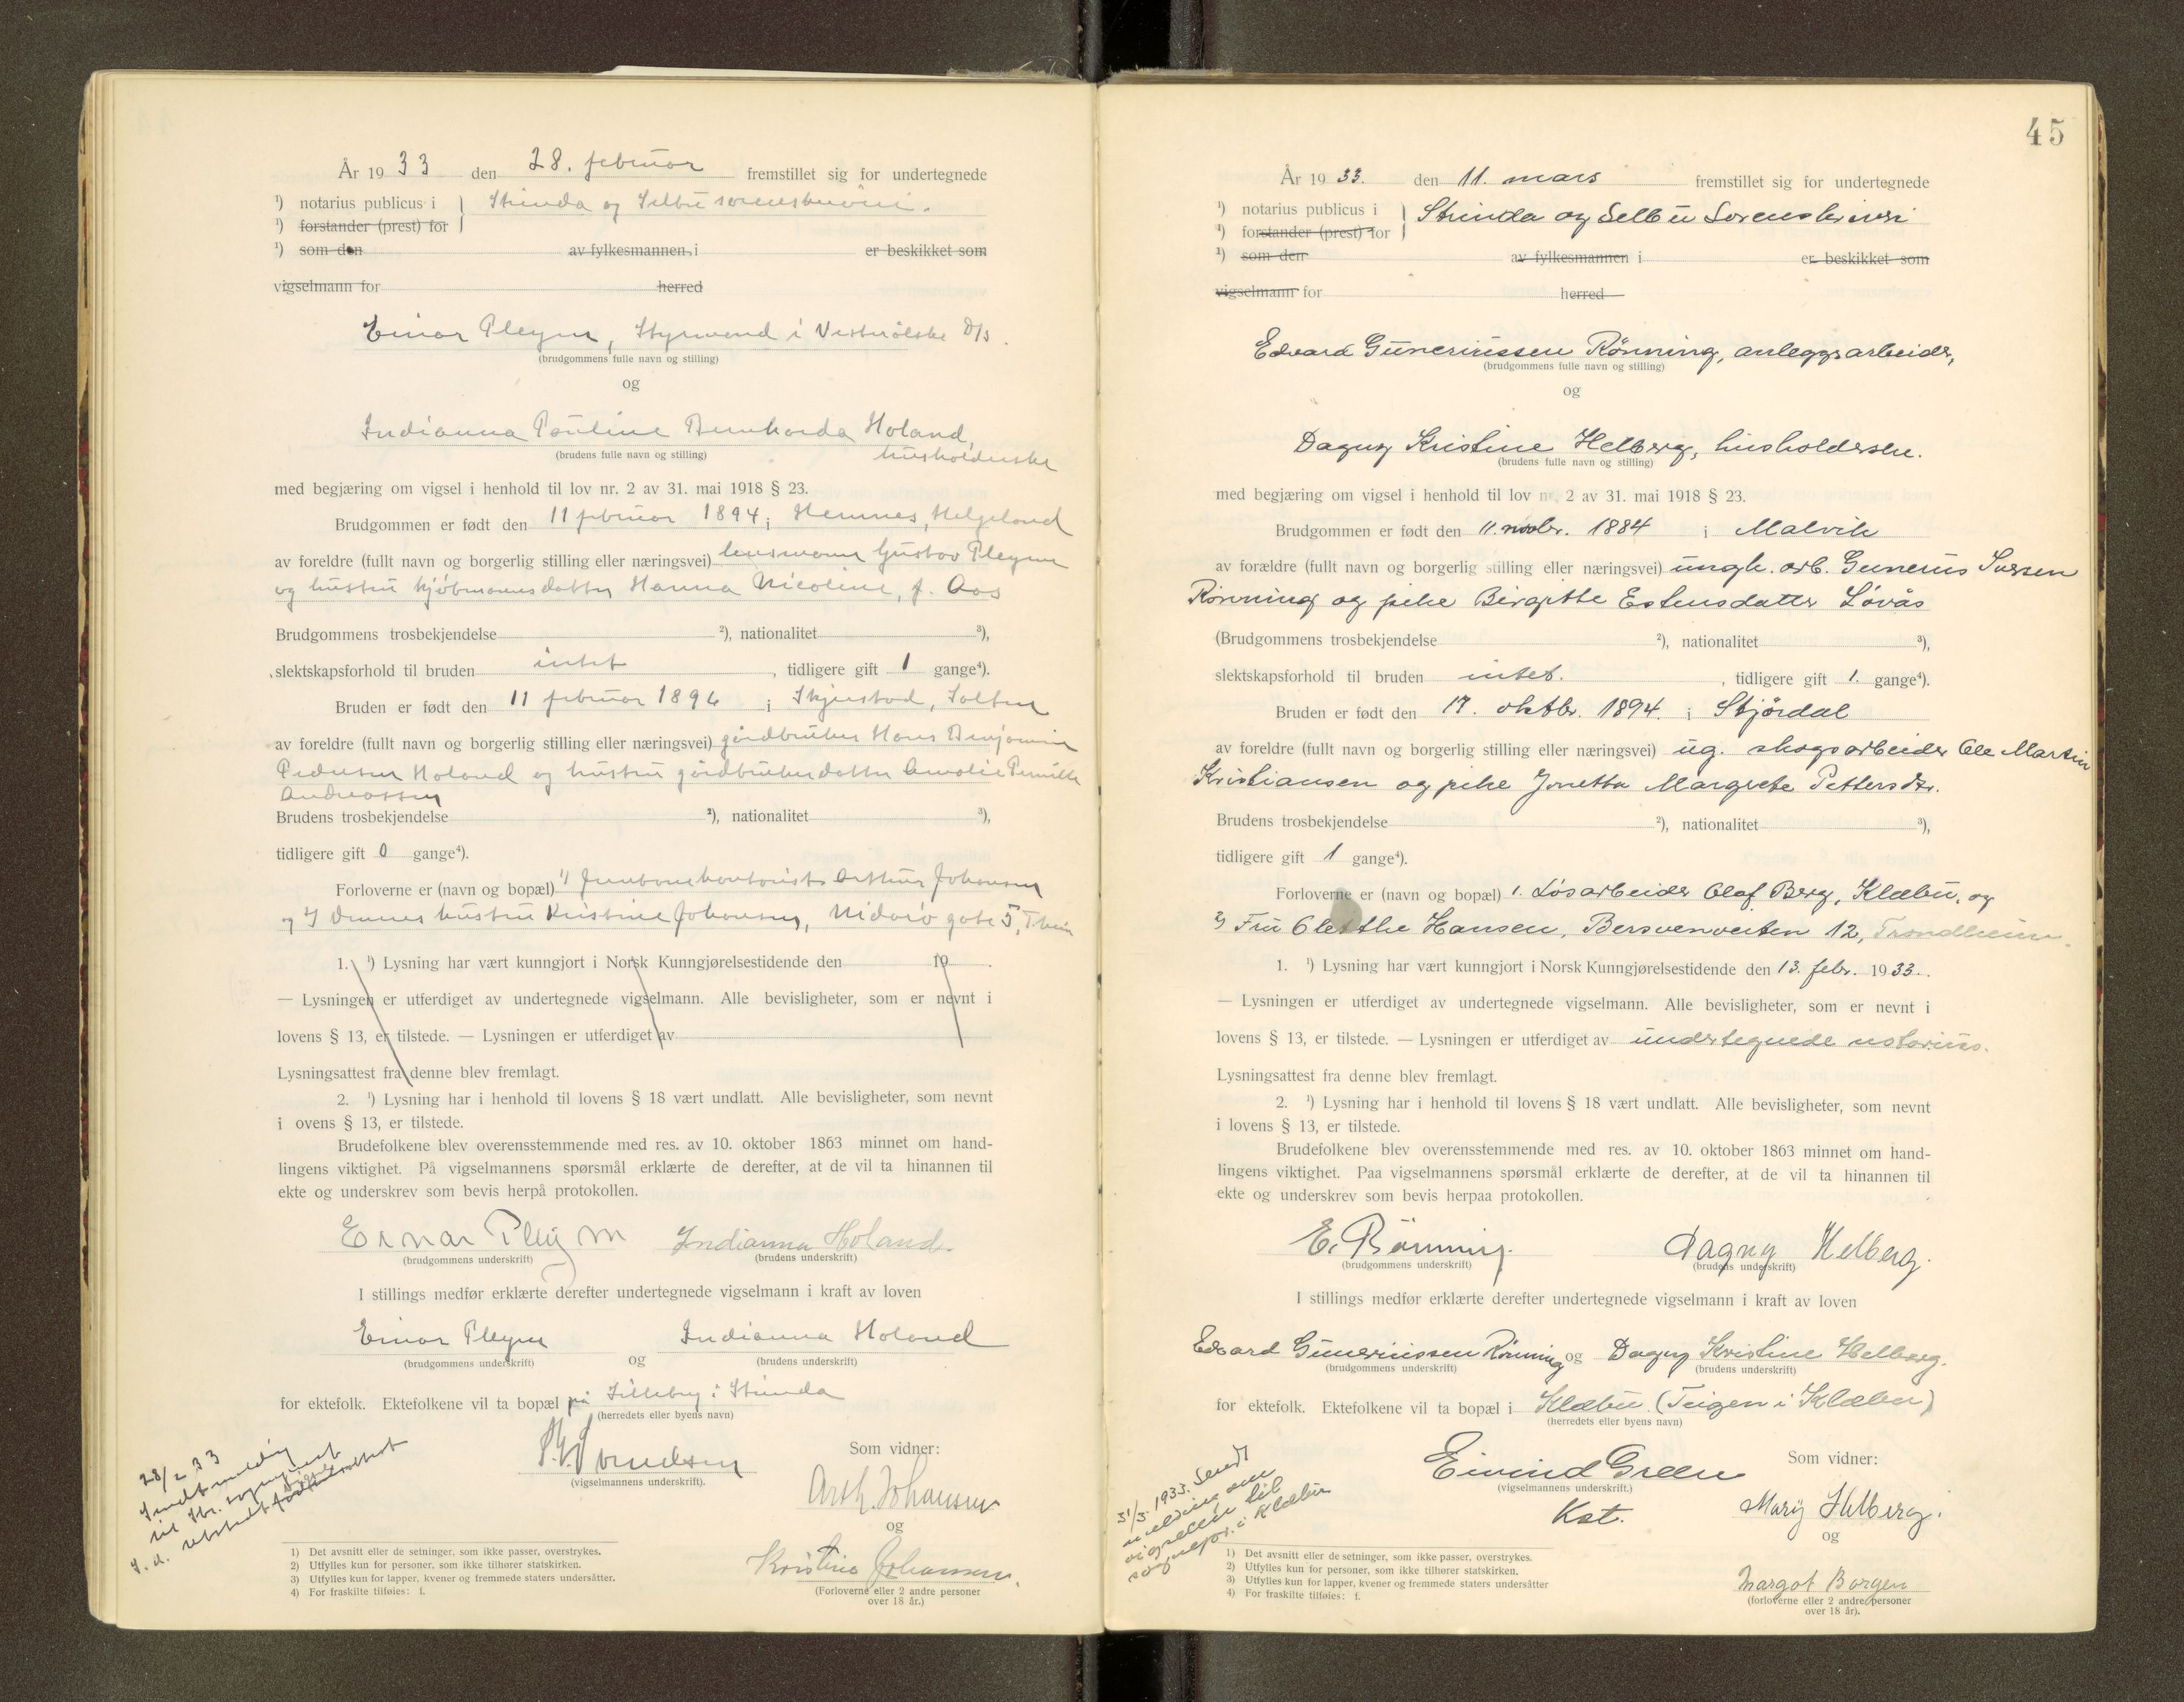 År 19 33 den 28. februar fremstillet sig for undertegnede
¹) notarius publicus i } Strinda og Selbu sorenskriveri.
¹) forstander (prest) for
¹) som den av fylkesmannen i er beskikket som
vigselmann for herred
Einar Pleym, Styrmand i Vesterålske D/S.
(brudgommens fulle navn og stilling)
og
Indianna Pauline Bernharda Holand,
(brudens fulle navn og stilling) husholderske
med begjæring om vigsel i henhold til lov nr. 2 av 31. mai 1918 § 23.
Brudgommen er født den 11 februar 1894 i Hemnes, Helgeland
av foreldre (fullt navn og borgerlig stilling eller næringsvei) lensmann Gustav Pleym
og hustru kjøbmannsdatter Hanna Nicoline, f. Aas
Brudgommens trosbekjendelse ²), nationalitet ³),
slektskapsforhold til bruden intet, tidligere gift 1 gange⁴).
Bruden er født den 11 februar 1896 i Skjerstad, Salten
av foreldre (fullt navn og borgerlig stilling eller næringsvei) gårdbruker Hans Benjamin
Pedersen Holand og hustru gårdbrukerdatter Amalie Pernille
Andreassen
Brudens trosbekjendelse ²), nationalitet ³),
tidligere gift 0 gange⁴).
Forloverne er (navn og bopæl) 1) Arthur Johansen
og 2) dennes hustru Kristine Johansen, Nidarø gate 5, T.heim
1. ¹) Lysning har vært kunngjort i Norsk Kunngjørelsestidende den 19 .
— Lysningen er utferdiget av undertegnede vigselmann. Alle bevisligheter, som er nevnt i
lovens § 13, er tilstede. — Lysningen er utferdiget av
Lysningsattest fra denne blev fremlagt.
2. ¹) Lysning har i henhold til lovens § 18 vært undlatt. Alle bevisligheter, som nevnt
i ovens § 13, er tilstede.
Brudefolkene blev overensstemmende med res. av 10. oktober 1863 minnet om hand-
lingens viktighet. På vigselmannens spørsmål erklærte de derefter, at de vil ta hinannen til
ekte og underskrev som bevis herpå protokollen.
Einar Pleym Indianna Holand.
(brudgommens underskrift) (brudens underskrift)
I stillings medfør erklærte derefter undertegnede vigselmann i kraft av loven
Einar Pleym og Indianna Holand
(brudgommens underskrift) (brudens underskrift)
for ektefolk. Ektefolkene vil ta bopæl på Lilleby i Strinda
(herredets eller byens navn)
28/2 33
Sendt melding
til
attest
(vigselmannens underskrift).
Som vidner:
Arth. Johansen
og
Kristine Johansen.
(Forloverne eller 2 andre personer
over 18 år.)
1) Det avsnitt eller de setninger, som ikke passer, overstrykes.
2) Utfylles kun for personer, som ikke tilhører statskirken.
3) Utfylles kun for lapper, kvener og fremmede staters undersåtter.
4) For fraskilte tilføies: f.
45
År 19 33. den 11. mars fremstillet sig for undertegnede
¹) notarius publicus i } Strinda og Selbu Sorenskriveri
¹) forstander (prest) for
¹) som den av fylkesmannen i er beskikket som
vigselmann for herred
Edvard Guneriussen Rønning, anleggsarbeider,
(brudgommens fulle navn og stilling)
og
Dagny Kristine Helberg, husholderske.
(brudens fulle navn og stilling)
med begjæring om vigsel i henhold til lov nr. 2 av 31. mai 1918 § 23.
Brudgommen er født den 11. novbr. 1884 i Malvik
av forældre (fullt navn og borgerlig stilling eller næringsvei) ungk. arb. Gunerius Iversen
Rønning og pike Birgitte Estensdatter Løvås
(Brudgommens trosbekjendelse ²), nationalitet ³),
slektskapsforhold til bruden intet., tidligere gift 1. gange⁴).
Bruden er født den 17. oktbr. 1894. i Stjørdal
av foreldre (fullt navn og borgerlig stilling eller næringsvei) ug. skogsarbeider Ole Martin
Kristiansen og pike Jonetta Margrete Pettersdtr.
Brudens trosbekjendelse ²), nationalitet ³),
tidligere gift 1 gange⁴).
Forloverne er (navn og bopæl) 1. Løsarbeider Olaf Berg, Klæbu, og
2) Fru Oletthe Hansen, Bersvenveiten 12, Trondheim.
1. ¹) Lysning har vært kunngjort i Norsk Kunngjørelsestidende den 13. febr. 19 33.
— Lysningen er utferdiget av undertegnede vigselmann. Alle bevisligheter, som er nevnt i
lovens § 13, er tilstede. — Lysningen er utferdiget av undertegnede notarius.
Lysningsattest fra denne blev fremlagt.
2. ¹) Lysning har i henhold til lovens § 18 vært undlatt. Alle bevisligheter, som nevnt
i lovens § 13, er tilstede.
Brudefolkene blev overensstemmende med res. av 10. oktober 1863 minnet om hand-
lingens viktighet. Paa vigselmannens spørsmål erklærte de derefter, at de vil ta hinannen til
ekte og underskrev som bevis herpaa protokollen.
E. Rönning. Dagny Helberg.
(brudgommens underskrift) (brudens underskrift)
I stillings medfør erklærte derefter undertegnede vigselmann i kraft av loven
Edvard Guneriussen Rønning og Dagny Kristine Helberg.
(brudgommens underskrift) (brudens underskrift)
for ektefolk. Ektefolkene vil ta bopæl i Klæbu (Teigen i Klæbu)
(herredets eller byens navn)
31/3. 1933. Sendt
melding om
vigselen til
sognepr. i Klæbu
Eivind Green
(vigselmannens underskrift.)
Kst.
Som vidner:
Mary Helberg.
og
Margot Borgen
(forloverne eller 2 andre personer
over 18 år).
1) Det avsnitt eller de setninger, som ikke passer, overstrykes.
2) Utfylles kun for personer, som ikke tilhører statskirken.
3) Utfylles kun for lapper, kvener og fremmede staters undersåtter
4) For fraskilte tilføies: f.